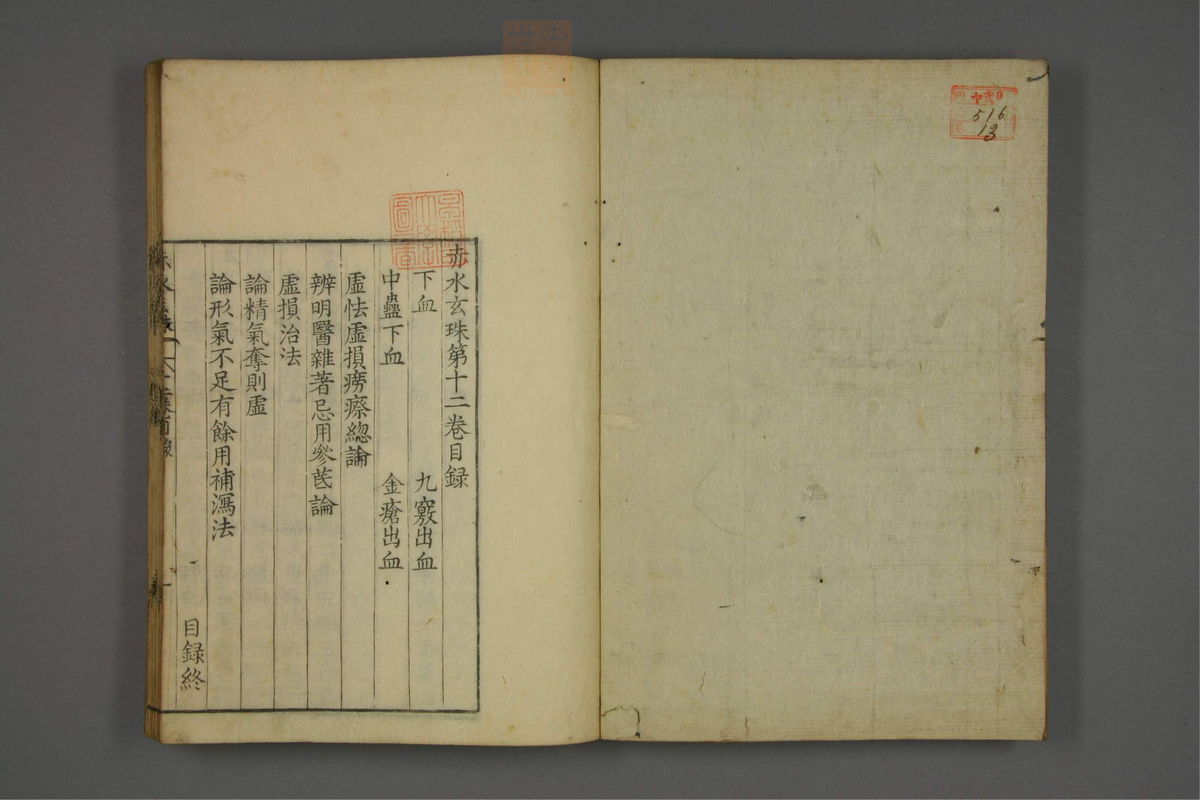 516
13
赤水玄珠第十二卷目録
下血 九竅出血
中蠱下血 金瘡出血
虛怯虛損癆瘵緫論
辨明醫雜著忌用參芪論
虛損治法
論精氣奪則虛
論形氣不足有餘用補瀉法
目録終